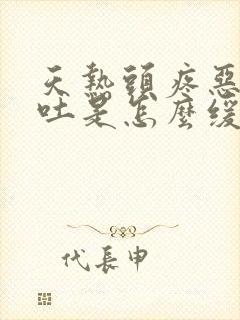 天熱頭疼惡
吐是怎麼缓
代長申